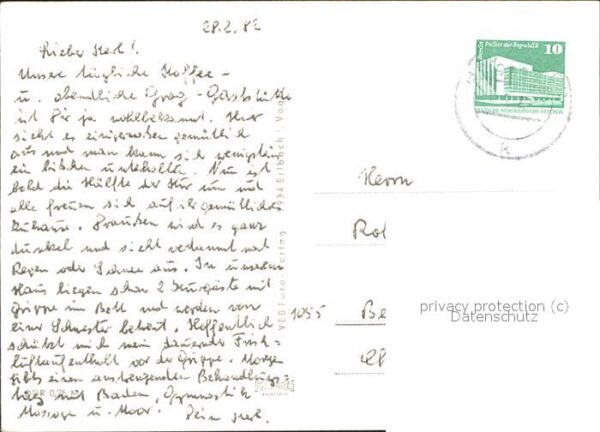 28.2.82
Lieber Karl!
Unsere tägliche Kaffee-
u. abendliche Grog-Gaststätte
ist Dir ja wohlbekannt. Hier
sieht es einigermaßen gemütlich
aus und man kann sich wenigstens
ein bißchen unterhalten. Nun ist
bald die Hälfte der Kur um und
alle freuen sich auf ihr gemütliches
Zuhause. Draußen wird es ganz
dunkel und sieht verdammt nach
Regen oder Schnee aus. In unserem
Haus liegen schon 2 Kurgäste mit
Grippe im Bett und werden von
einer Schwester betreut. Hoffentlich
schützt mich mein dauernder Frisch-
luftaufenthalt vor der Grippe. Morgen
gibts einen anstrengenden Behandlungs-
tag mit Baden, Gymnastik
Massage u. Moor. Dein
VEB Verlag
Palast der Republik
10
Herrn
1055 Be
privacy protection (c)
Datenschutz